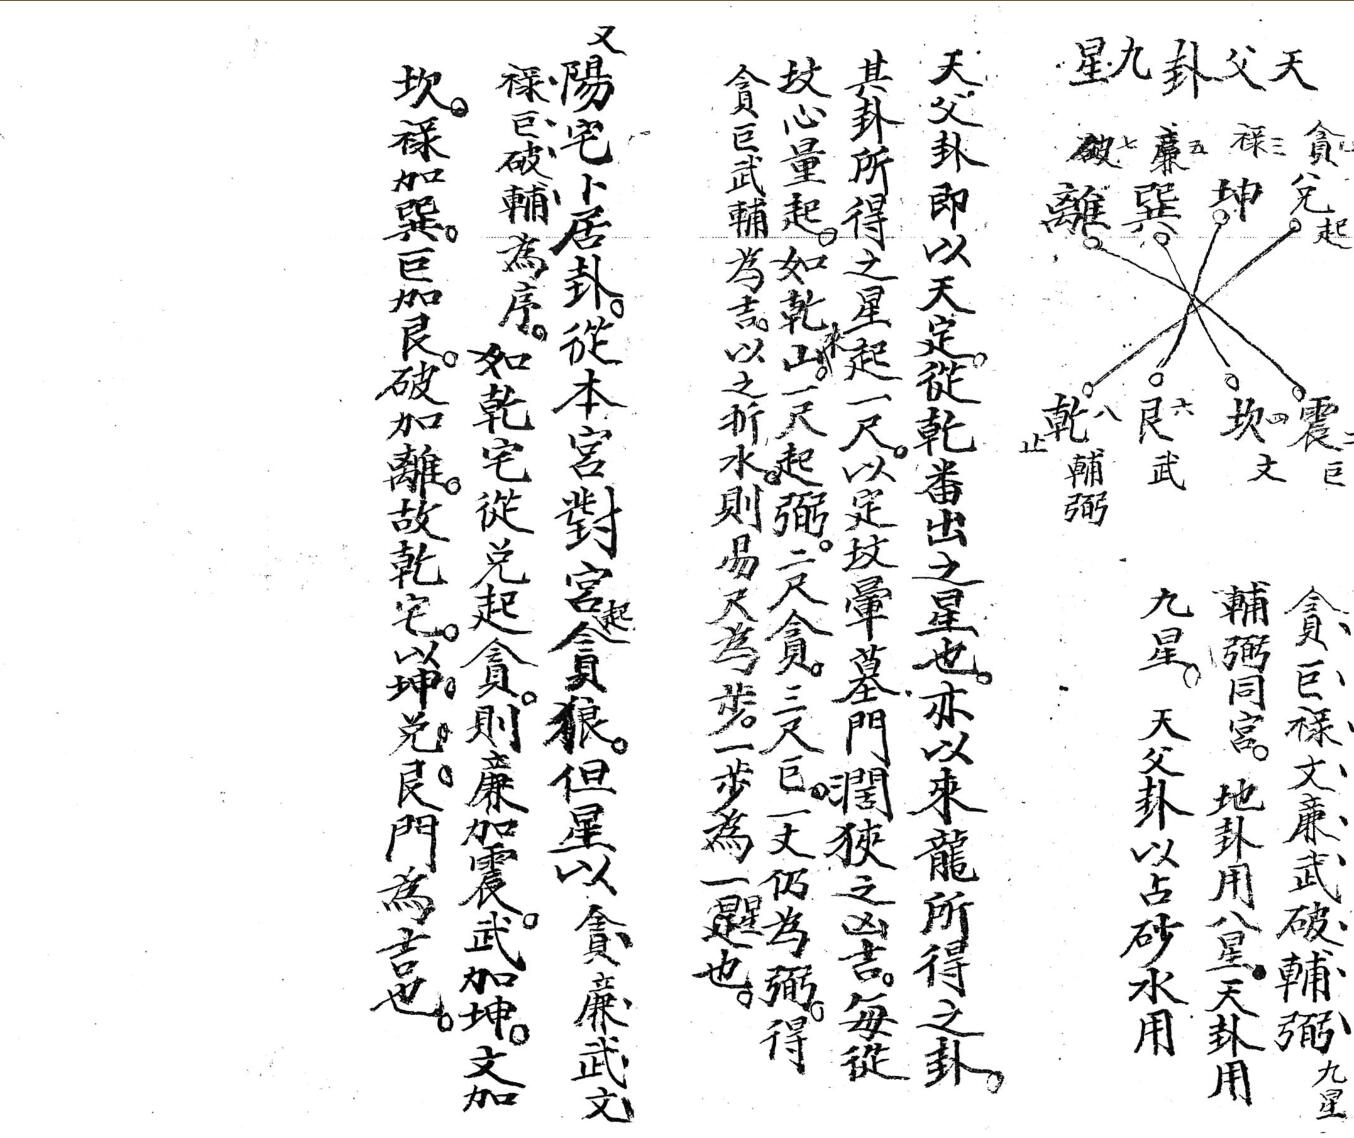 天父卦九星
貪 一 兌 起
禄 三 坤
廉 五 巽
破 七 離
震 二 巨
坎 四 文
艮 六 武
乾 八 輔弼 止
貪巨禄文廉武破輔弼九星
輔弼同宮。地卦用八星。天卦用
九星。天父卦以占砂水用
天父卦即以天定。從乾番出之星也。亦以來龍所得之卦。
其卦所得之星起一尺。以定坟暈墓門濶狹之凶吉。每從
坟心量起。如乾山來。一尺起弼。二尺貪。三尺巨。一丈仍為弼。得
貪巨武輔為吉。以之折水。則易尺為步。一步為一星也。
又陽宅卜居卦。從本宮對宮起貪狼。但星以貪廉武文
禄巨破輔為序。如乾宅從兌起貪。則廉加震。武加坤。文加
坎。禄加巽。巨加艮。破加離。故乾宅。以坤。兌。艮門為吉也。